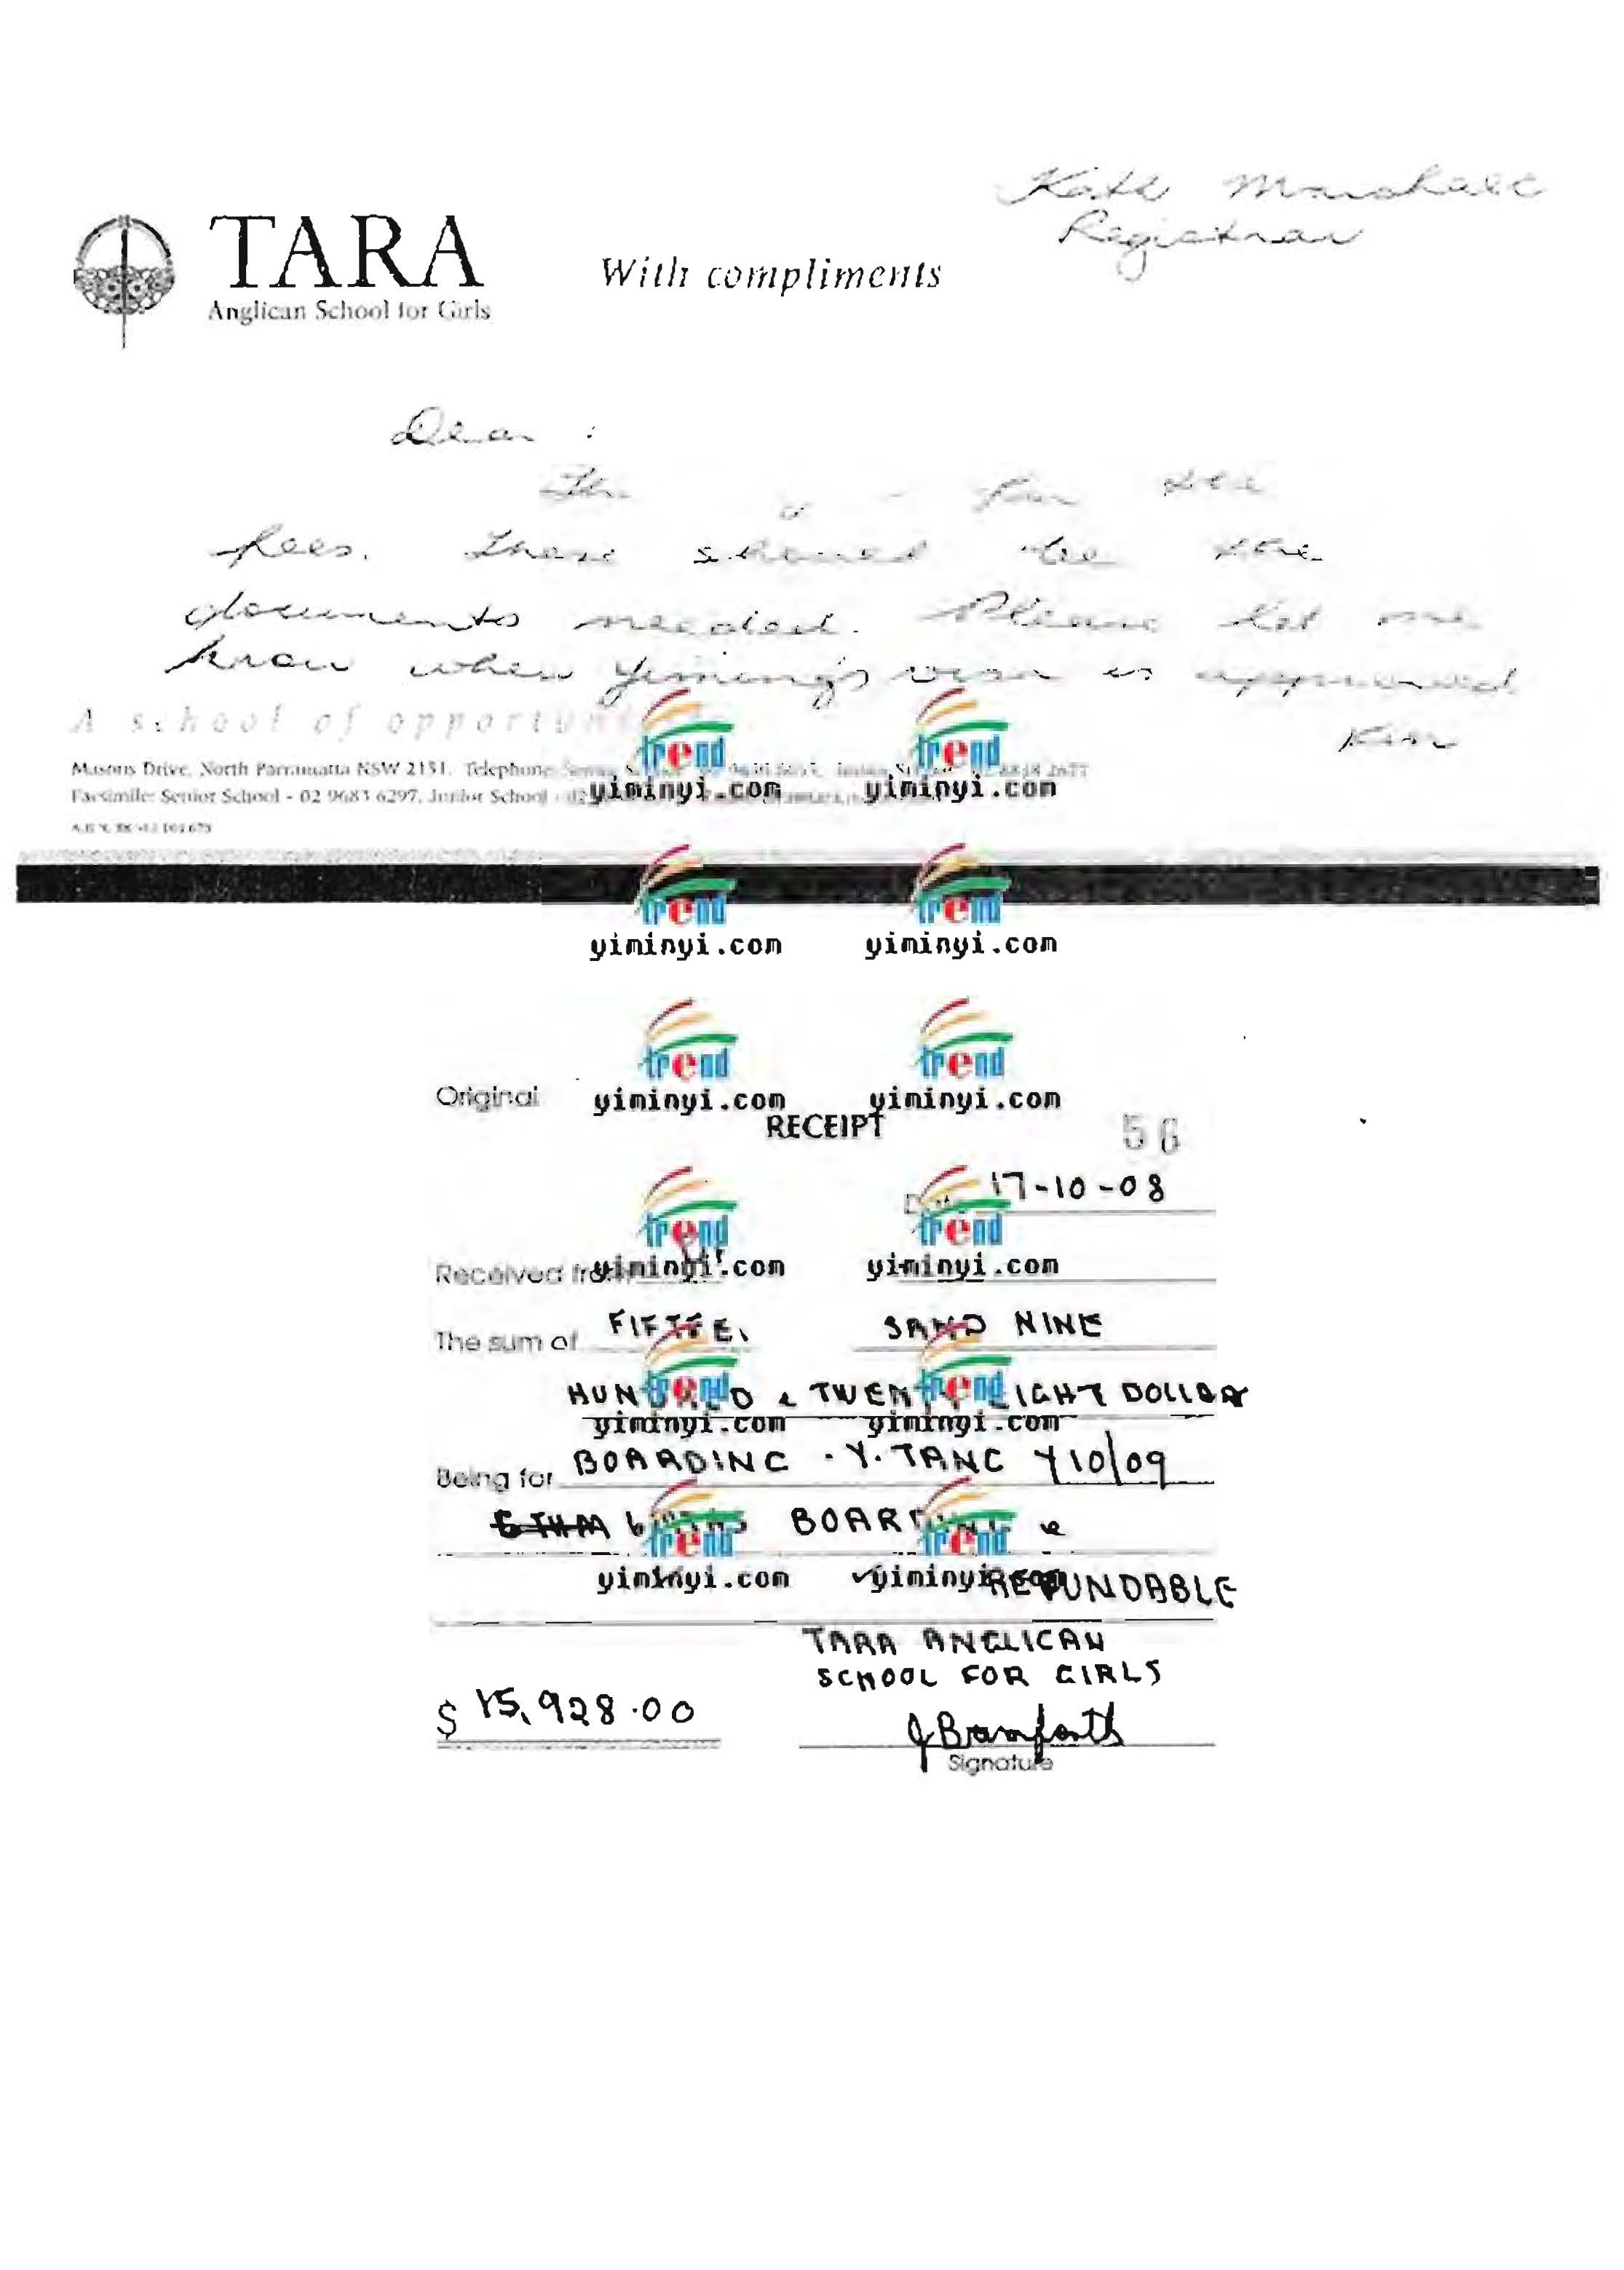 Kate Marshall
Registrar
TARA
Anglican School for Girls
With compliments
Dear
for the
fees. These should be the
documents needed. Please let me
know when Yiming's visa is approved
A school of opportun
Masons Drive, North Parramatta NSW 2151. Telephone
Facsimile: Senior School - 02 9683 6297, Junior School
trend trend
yiminyi.com yiminyi.com
trend trend
yiminyi.com yiminyi.com
trend trend
Original yiminyi.com yiminyi.com
RECEIPT 56
17-10-08
trend trend
Received from yiminyi.com yiminyi.com
The sum of FIFTEE SAND NINE
HUNDRED & TWENTY EIGHT DOLLAR
trend trend
yiminyi.com yiminyi.com
Being for BOARDING - Y. TANG Y10/09
BOARDING &
trend trend
yiminyi.com yiminyi.com REFUNDABLE
TARA ANGLICAN
SCHOOL FOR GIRLS
$ 15,928.00
J Bamforth
Signature